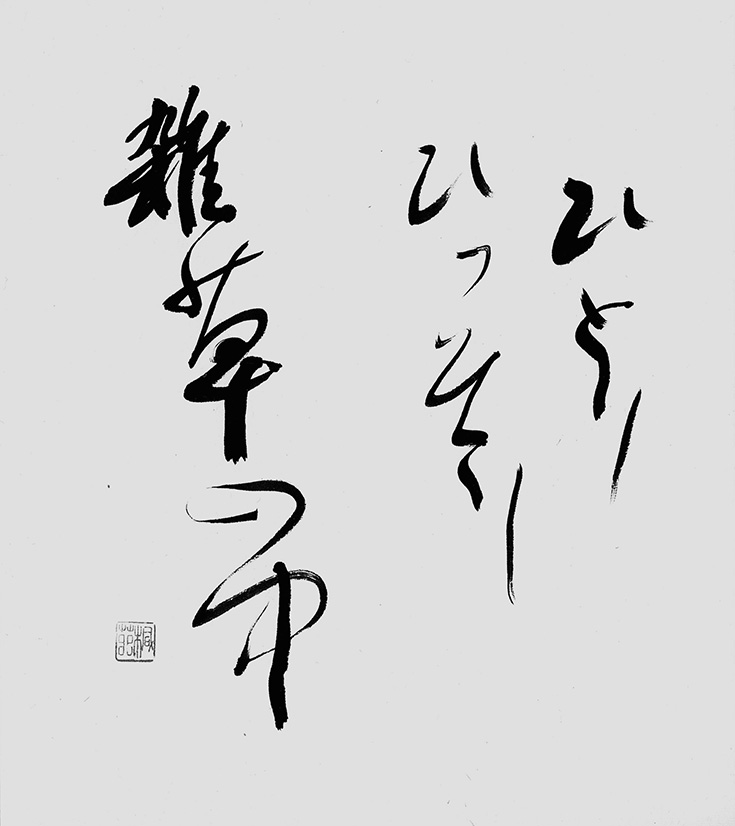 ひとり
ひっそり
雑草の中